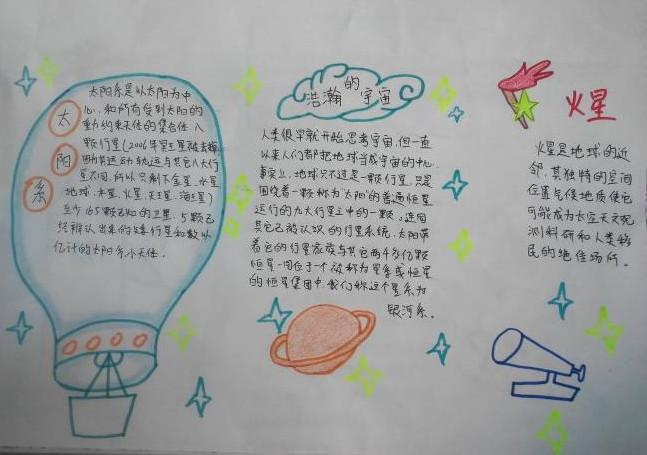 太阳系
太阳系是以太阳为中
心,和所有受到太阳的
重力约束天体的集合体.八
颗行星(2006年冥王星被去掉
因为其运动轨道与其它八大行
星不同,所以只剩下金星、水星
地球、木星、火星、天王星、海王星)
至少165颗已知的卫星.5颗已
经辨认出来的矮行星和数以
亿计的太阳系小天体.
浩瀚的宇宙
人类很早就开始思考宇宙,但一直
以来人们都把地球当成宇宙的中心.
事实上,地球只不过是一颗行星,只是
围绕着一颗称为“太阳”的普通恒星
运行的九大行星之中的一颗。连同
其它已被认识的行星系统,太阳带
着它的行星家族与其它两千多亿颗
恒星一同位于一个被称为星系或恒星
的恒星集团中.我们称这个星系为
银河系.
火星
火星是地球的近
邻,其独特的空间
位置气候地质使它
可能成为太空天文观
测科研和人类移
民的绝佳场所。